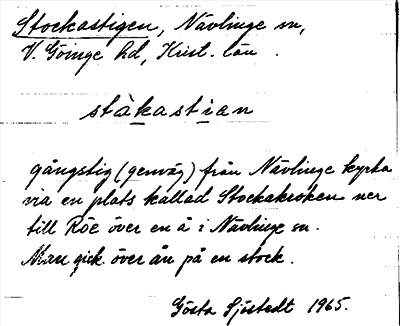 Stockastigen, Nävlinge sn,
V. Göinge hd, Krist. län.
ståkastian
gångstig (genväg) från Nävlinge kyrka
via en plats kallad Stockakroken ner
till Röe över en å i Nävlinge sn.
Man gick över ån på en stock.
Gösta Sjöstedt 1965.